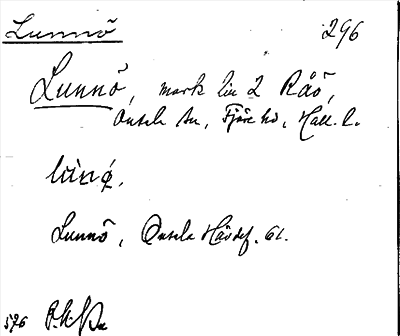 Lunnö 296
Lunnö, mark till 2 Råö,
Onsala sn, Fjäre hd, Hall. l.
Lunnö, Onsala Hävdef. 61.
596